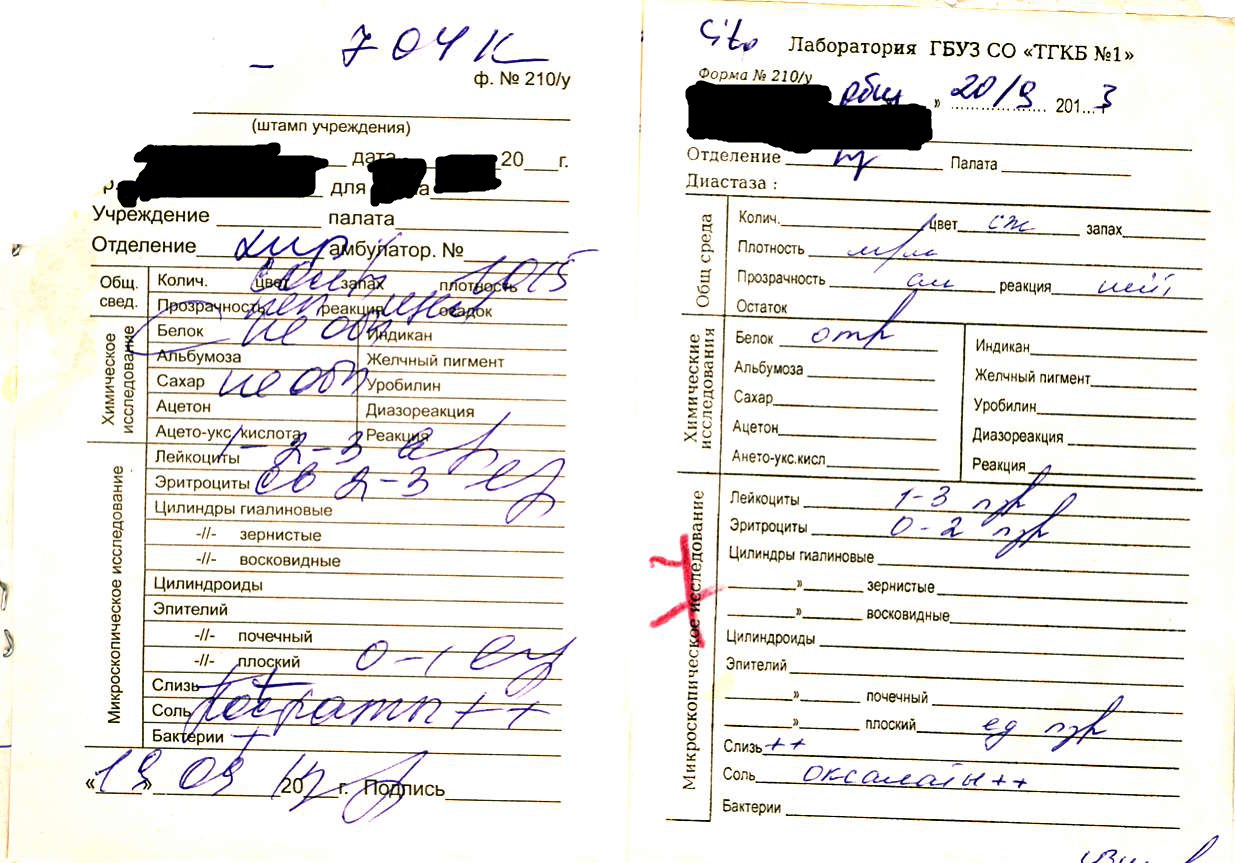 704 К
ф. № 210/у
(штамп учреждения)
дата 20 г.
для
Учреждение палата
Отделение хир амбулатор. №
Общ. свед.
Колич. цвет запах плотность 1015
Прозрачность реакция осадок
Химическое исследование
Белок не обн Индикан
Альбумоза Желчный пигмент
Сахар не обн Уробилин
Ацетон Диазореакция
Ацето-укс. кислота Реакция
Микроскопическое исследование
Лейкоциты 1-2-3
Эритроциты св 2-3
Цилиндры гиалиновые
-//- зернистые
-//- восковидные
Цилиндроиды
Эпителий
-//- почечный
-//- плоский 0-1
Слизь +
Соль фосфаты ++
Бактерии +
«19» 09 20 г. Подпись
Cito Лаборатория ГБУЗ СО «ТГКБ №1»
Форма № 210/у
общ » 20/9 201 3
Отделение Палата
Диастаза :
Общ среда
Колич. цвет сж запах
Плотность м/м
Прозрачность реакция
Остаток
Химические исследования
Белок отр Индикан
Альбумоза Желчный пигмент
Сахар Уробилин
Ацетон Диазореакция
Ането-укс.кисл Реакция
Микроскопическое исследование
Лейкоциты 1-3 пзр
Эритроциты 0-2 пзр
Цилиндры гиалиновые
» зернистые
» восковидные
Цилиндроиды
Эпителий
» почечный
» плоский ед пзр
Слизь ++
Соль оксалаты ++
Бактерии